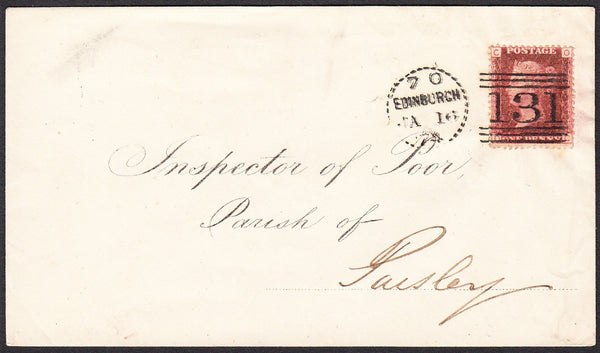 C G
POSTAGE
70
EDINBURGH
JA 16
131
ONE PENNY
Inspector of Poor,
Parish of
Paisley